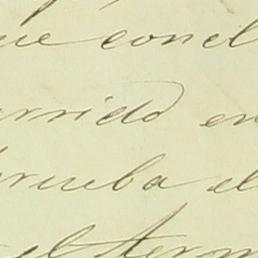 que con el
rrido en
prueba el
el term